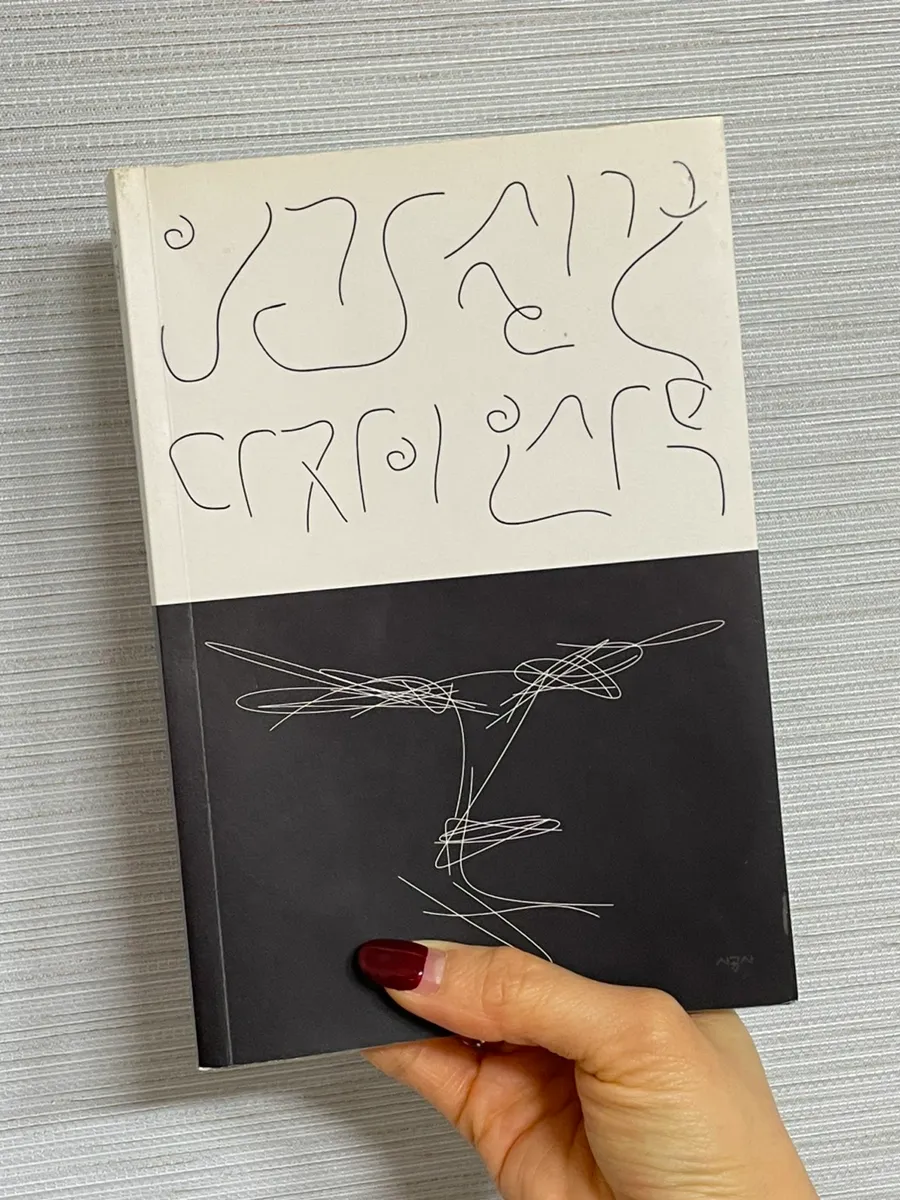 인간실격
다자이 오사무
시공사